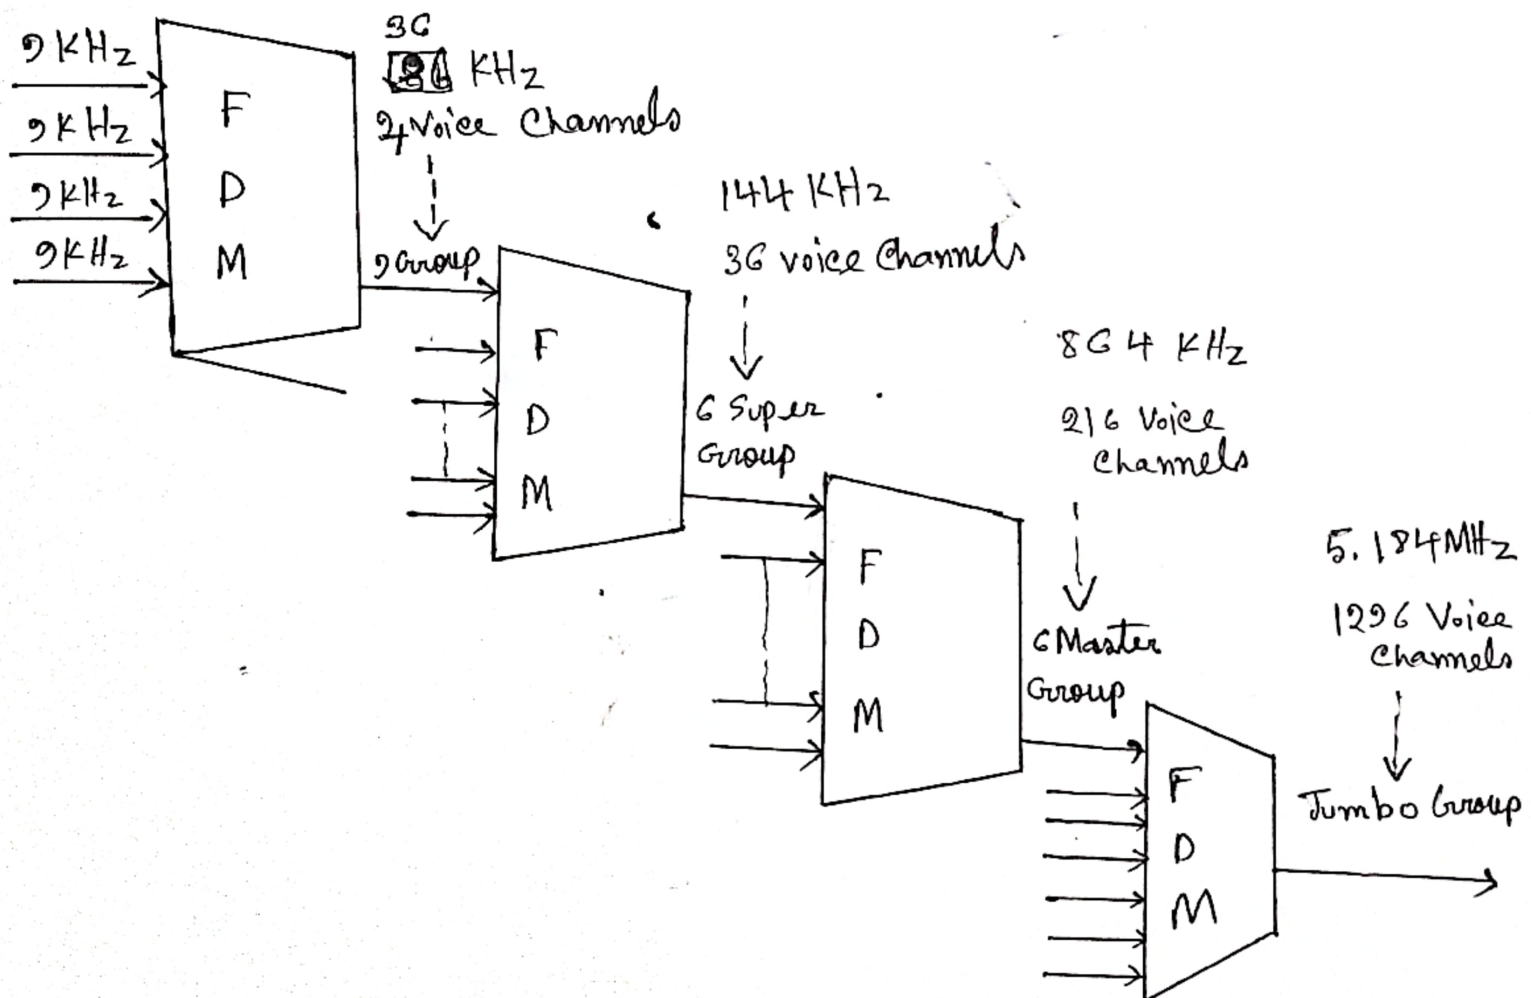 9 KHz
9 KHz
9 KHz
9 KHz
F
D
M
36
KHz
4 Voice Channels
9 Group
F
D
M
144 KHz
36 voice Channels
6 Super
Group
F
D
M
864 KHz
216 Voice
Channels
6 Master
Group
F
D
M
5.184 MHz
1296 Voice
Channels
Jumbo Group